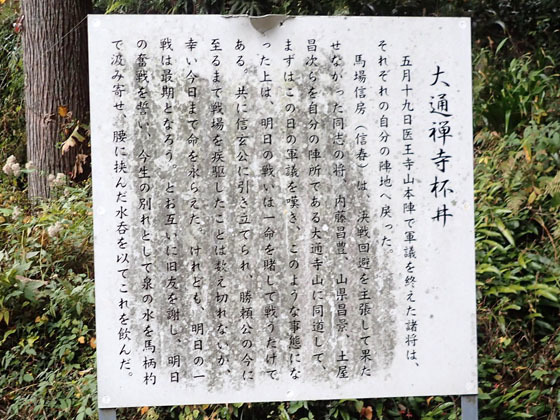 大通禅寺杯井
五月十九日医王寺山本陣で軍議を終えた諸将は、
それぞれの自分の陣地へ戻った。
馬場信房（信春）は、決戦回避を主張して果た
せなかった同志の将、内藤昌豊、山県昌景、土屋
昌次らを自分の陣所である大通寺山に同道して、
まずはこの日の軍議を嘆き、このような事態にな
った上は、明日の戦いは一命を賭して戦うだけで
ある。共に信玄公に引き立てられ、勝頼公の今に
至るまで戦場を疾駆したことは数え切れないが、
幸い今日まで命を永らえた。けれども、明日の一
戦は最期となろう、とお互いに旧友を謝し、明日
の奮戦を誓い、今生の別れとして泉の水を馬柄杓
で汲み寄せ、腰に挟んだ水呑を以てこれを飲んだ。